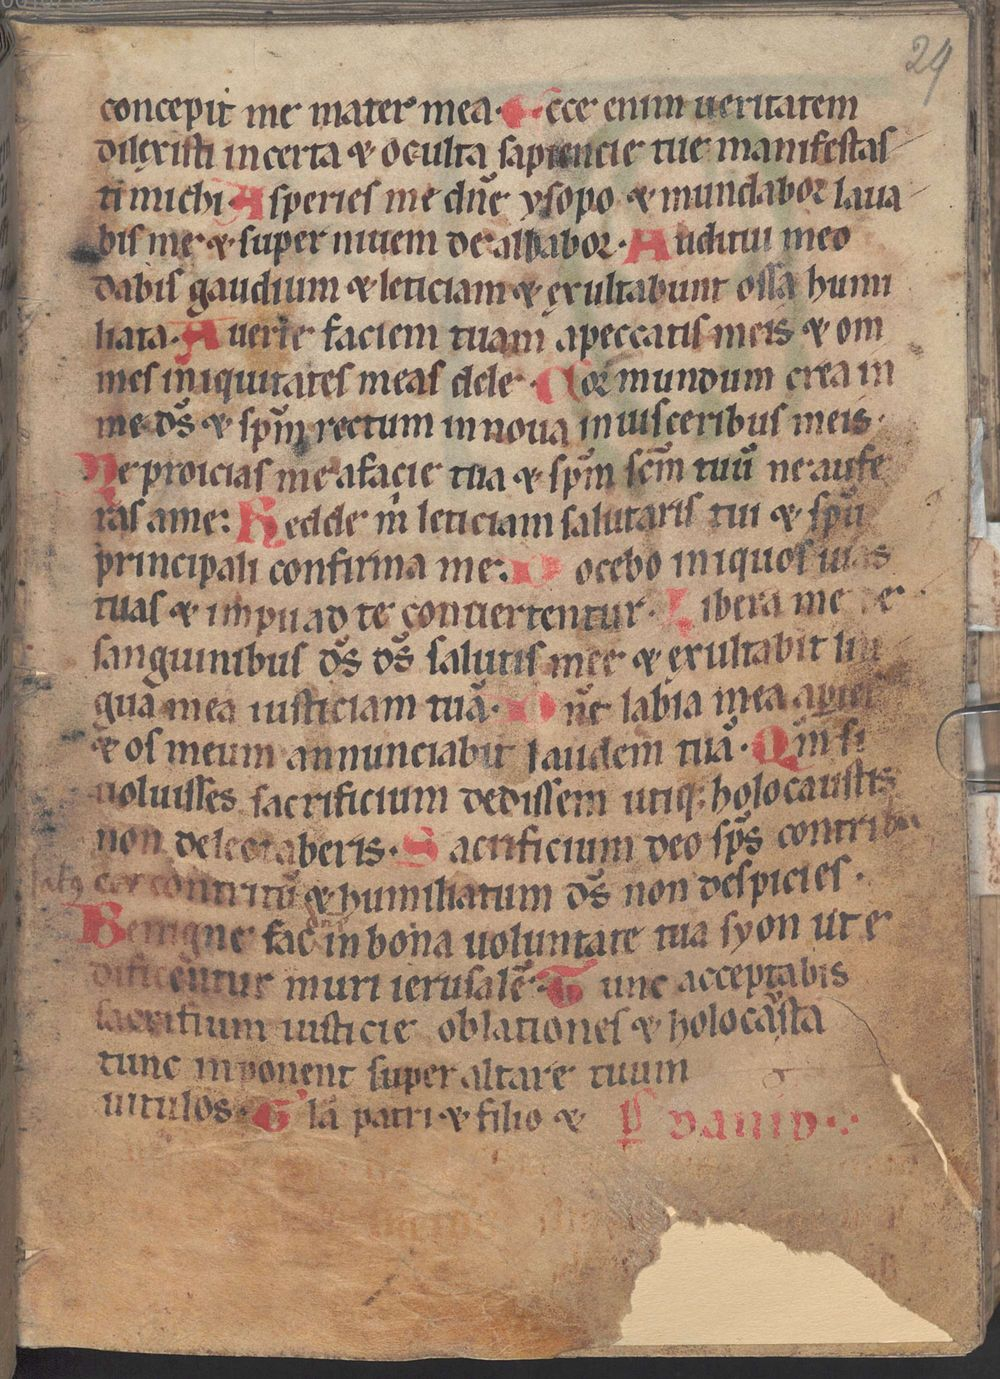 29
concepit me mater mea· Ecce enim ueritatem
dilexisti incerta ⁊ oculta sapiencie tue manifestas
ti michi· Asperies me dn̄e ysopo ⁊ mundabor laua
bis me ⁊ super niuem de albabor· Auditui meo
dabis gaudium ⁊ leticiam ⁊ exultabunt ossa humi
liata· Auerte faciem tuam apeccatis meis ⁊ om
nes iniquitates meas dele· Cor mundum crea in
me ds̄ ⁊ sp̄m rectum innoua inuisceribus meis·
Ne proicias me afacie tua ⁊ sp̄m sc̄m tuū ne aufe
ras ame: Redde m leticiam salutaris tui ⁊ sp̄u
principali confirma me: Docebo iniquos uias
tuas ⁊ impii ad te conuertentur· Libera me de
sanguinibus ds̄ ds̄ salutis mee ⁊ exultabit lin
gua mea iusticiam tuā· Dn̄e labia mea aperies
⁊ os meum annunciabit laudem tuā· Qm̄ si
uoluisses sacrificium dedissem utiq; holocaustis
non delectaberis· Sacrificium deo sp̄s contribu
cor contritū ⁊ humiliatum ds̄ non despicies·
Benigne fac dn̄e in bona uoluntate tua syon ut e
dificentur muri ierusalē· Tunc acceptabis
sacrifium iusticie oblationes ⁊ holocausta
tunc inponent super altare tuum
uitulos· Glā patri ⁊ filio ⁊ ps̄ dauid·: